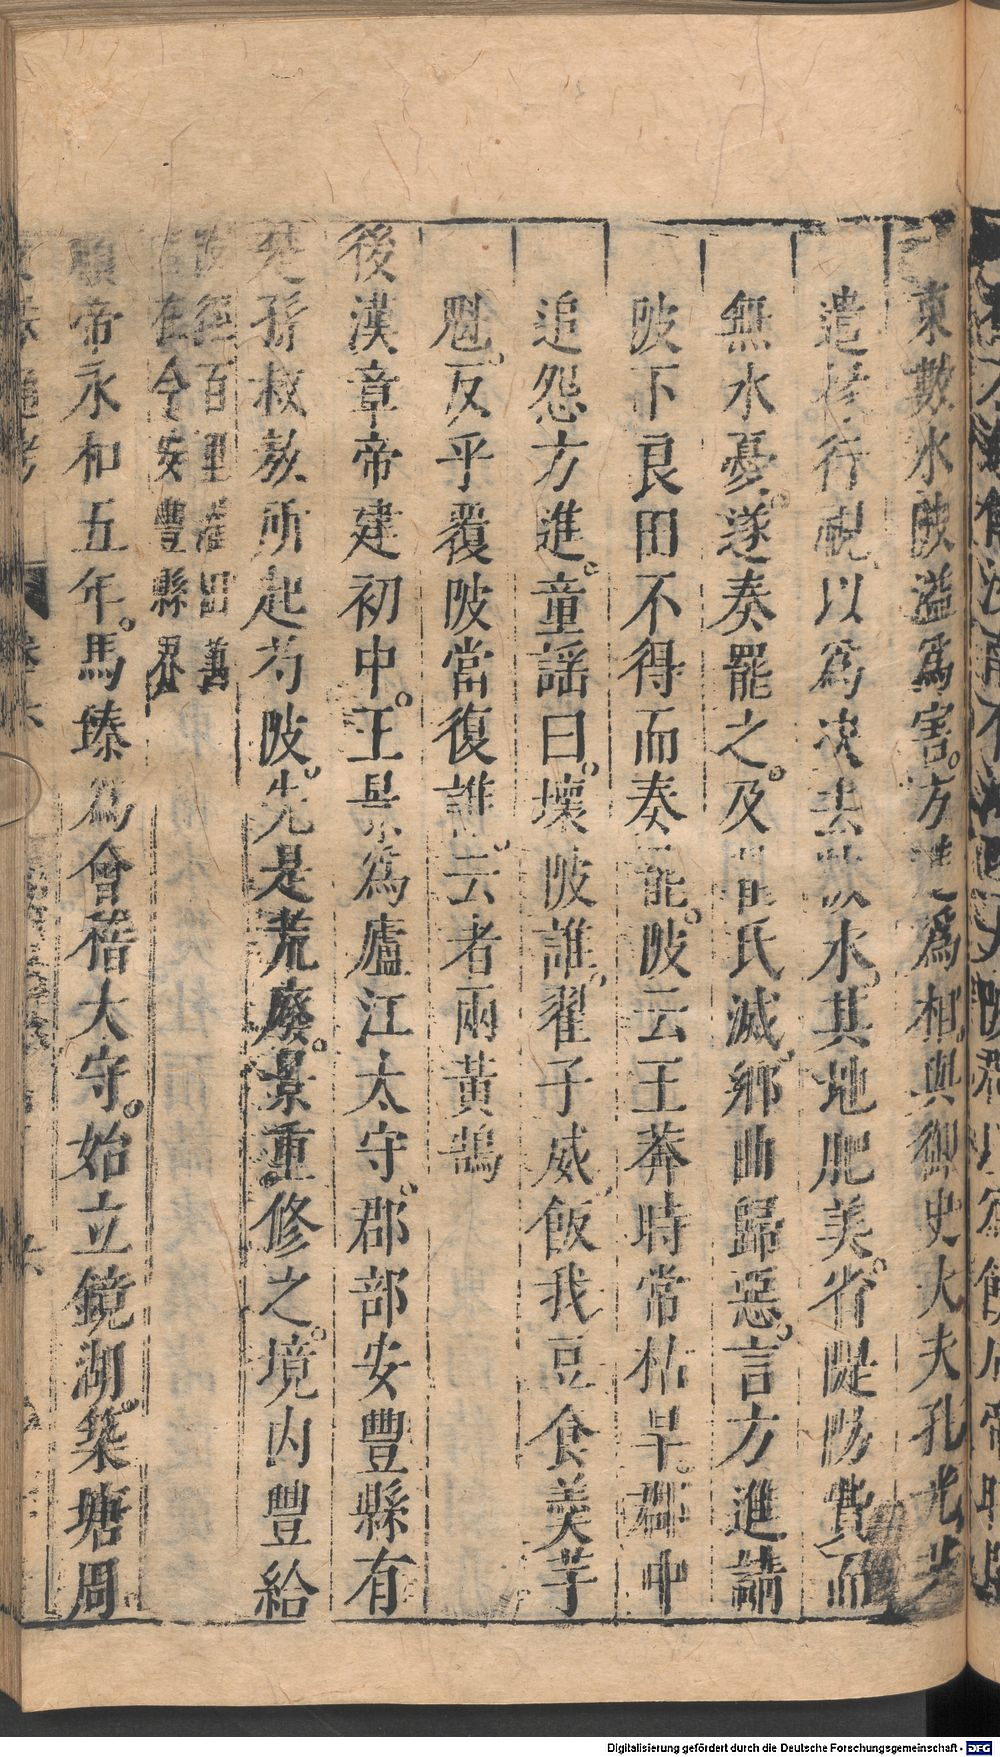 東數水陂溢爲害。方進爲相。與御史大夫孔光共
遣掾行視、以爲决去陂水。其地肥美。省隄防費而
無水憂。遂奏罷之。及翟氏滅、鄉曲歸惡。言方進請
陂下良田不得而奏罷陂云王莽時常枯旱。郡中
追怨方進。童謡曰。壞陂誰、翟子威、飯我豆食羮芋
魁。反乎覆陂當復誰云者兩黃鵠
後漢章帝建初中。王景爲廬江太守、郡部安豐縣有
楚孫叔敖所起芍陂。先是荒廢。景重修之。境内豐給
陂徑百里灌田萬
在今安豐縣界
順帝永和五年。馬臻爲會稽太守。始立鏡湖。築塘周
Digitalisierung gefördert durch die Deutsche Forschungsgemeinschaft - DFG